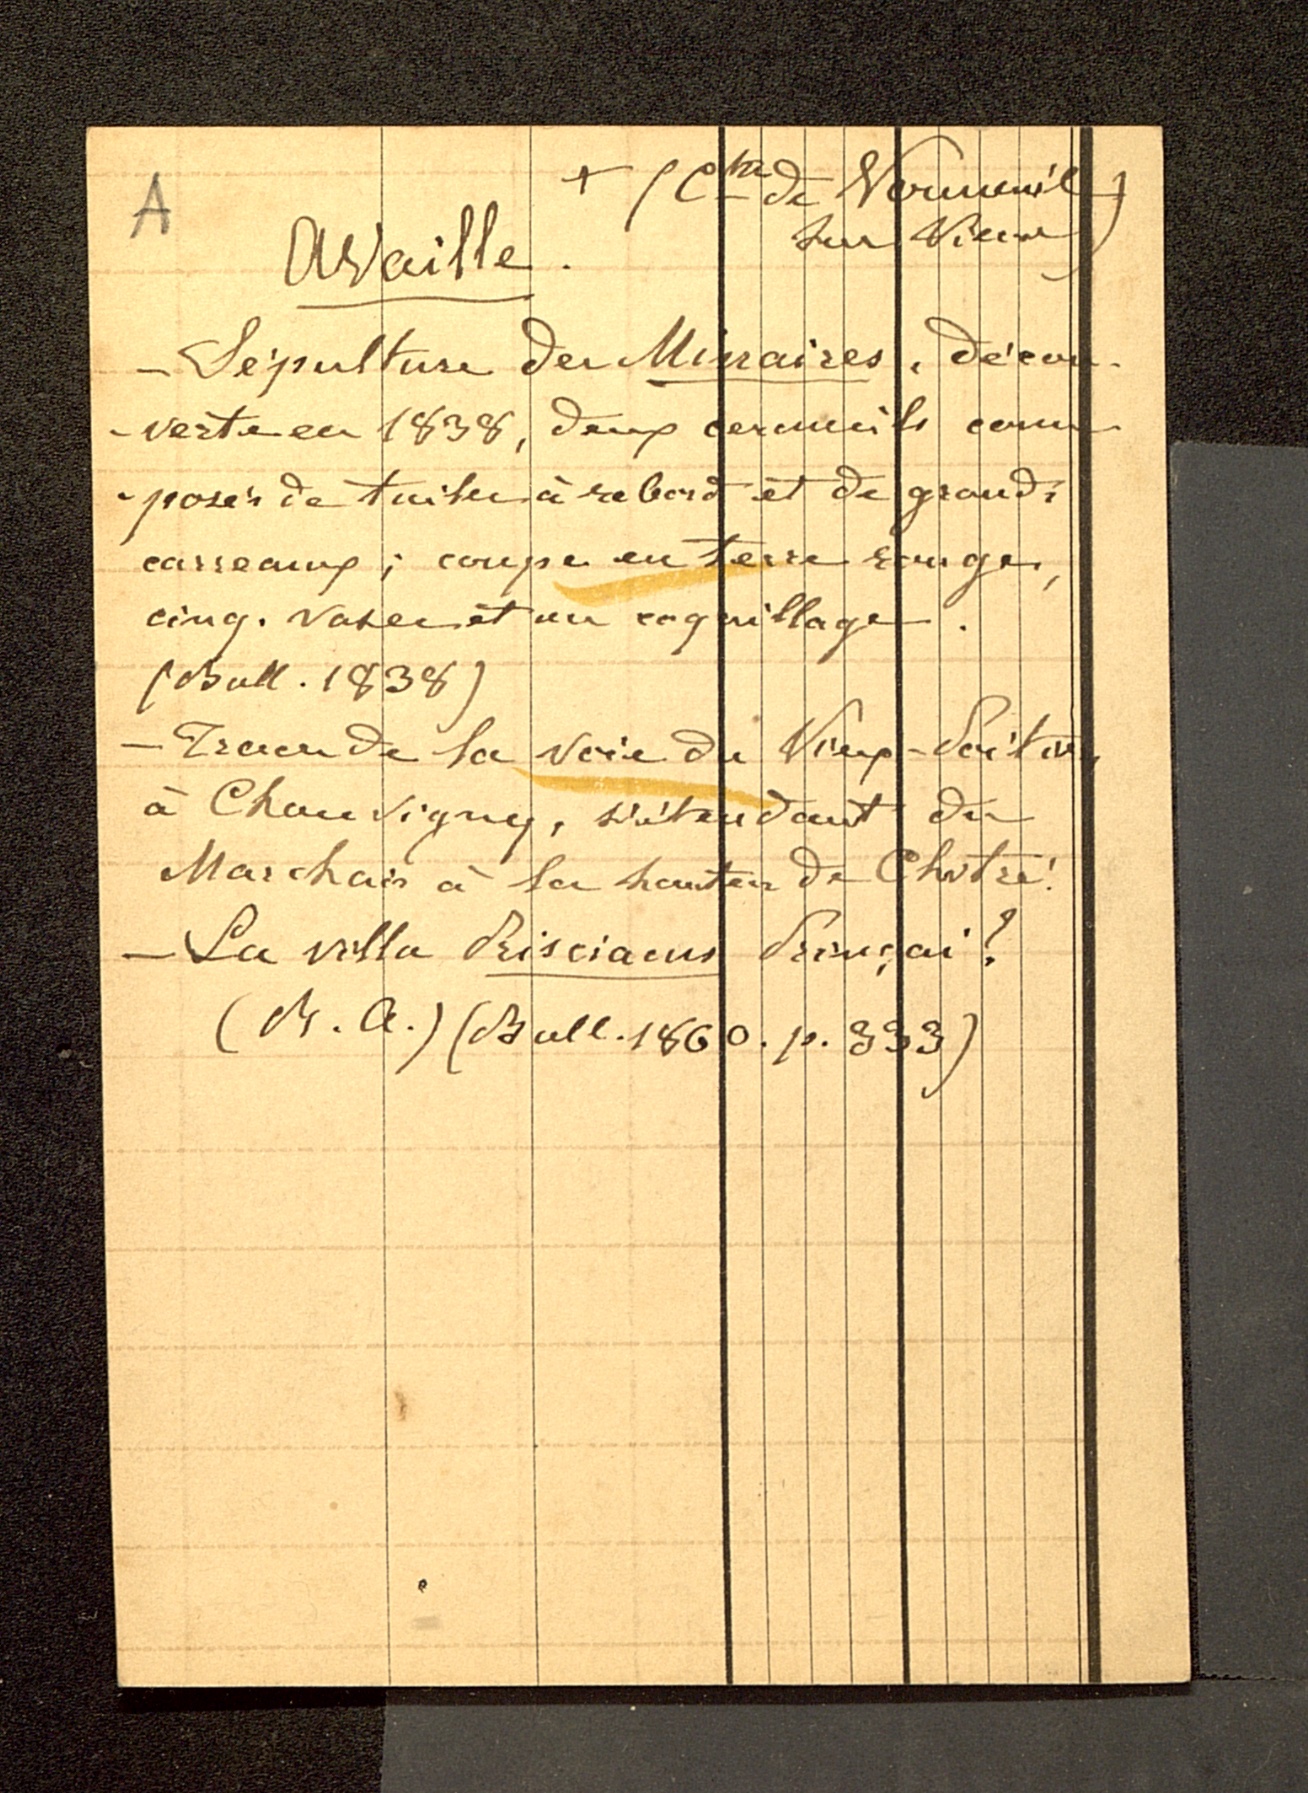 A
+ (Cton de Vouneuil
sur Vienne)
Availle.
- Sépulture des Minraires, décou-
-verte en 1838, deux cercueils com-
-posés de tuiles à rebord et de grands
carreaux ; coupe en terre rouge,
cinq. vases et un coquillage.
(Bull. 1838)
- Traces de la voie du Vieux-Poitiers
à Chauvigny, s'étendant du
Marchais à la hauteur de Chitré.
- La villa Prisciacus Prinçai ?
(B. A.) (Bull. 1860. p. 333)